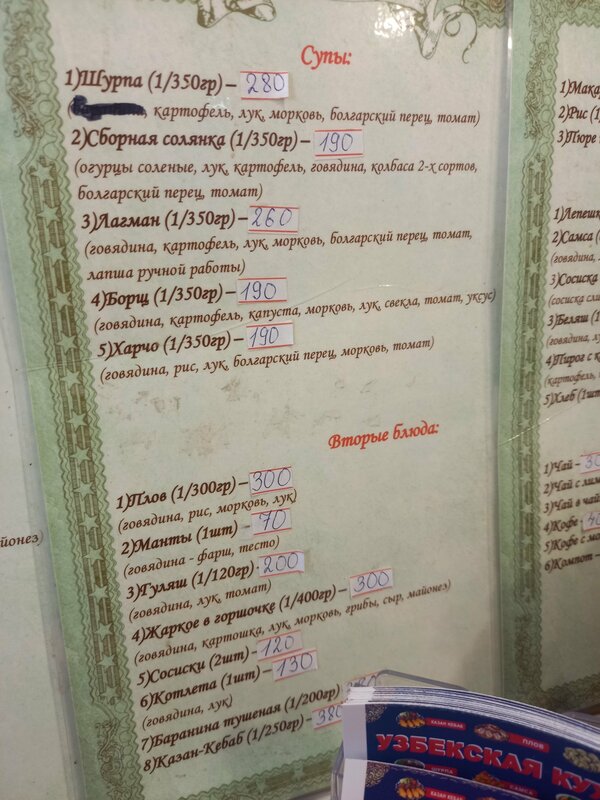 Супы:
1)Шурпа (1/350гр) – 280
, картофель, лук, морковь, болгарский перец, томат)
2)Сборная солянка (1/350гр) – 190
(огурцы соленые, лук, картофель, говядина, колбаса 2-х сортов,
болгарский перец, томат)
3)Лагман (1/350гр) – 260
(говядина, картофель, лук, морковь, болгарский перец, томат,
лапша ручной работы)
4)Борщ (1/350гр) – 190
(говядина, картофель, капуста, морковь, лук, свекла, томат, уксус)
5)Харчо (1/350гр) – 190
(говядина, рис, лук, болгарский перец, морковь, томат)
Вторые блюда:
1)Плов (1/300гр) – 300
(говядина, рис, морковь, лук)
2)Манты (1шт) – 70
(говядина - фарш, тесто)
3)Гуляш (1/120гр) - 200
(говядина, лук, томат)
4)Жаркое в горшочке (1/400гр) – 300
(говядина, картошка, лук, морковь, грибы, сыр, майонез)
5)Сосиски (2шт) – 120
6)Котлета (1шт) – 130
(говядина, лук)
7)Баранина тушеная (1/200гр)
8)Казан-Кебаб (1/250гр) – 380
2)Рис (1/
3)Пюре
2)Самса (
(говядина,
3)Сосиска
3)Беляш (1
(говядина, лу
4)Пирог с к
(картофель,
5)Хлеб (1шт
1)Чай – 30
2)Чай с лим
3)Чай в чай
4)Кофе – 40
5)Кофе с мо
6)Компот –
йонез)
КАЗАН КЕБАБ
ПЛОВ
УЗБЕКСКАЯ КУ
ШУРПА
САМСА
КАЗАН КЕБАБ
ПЛОВ